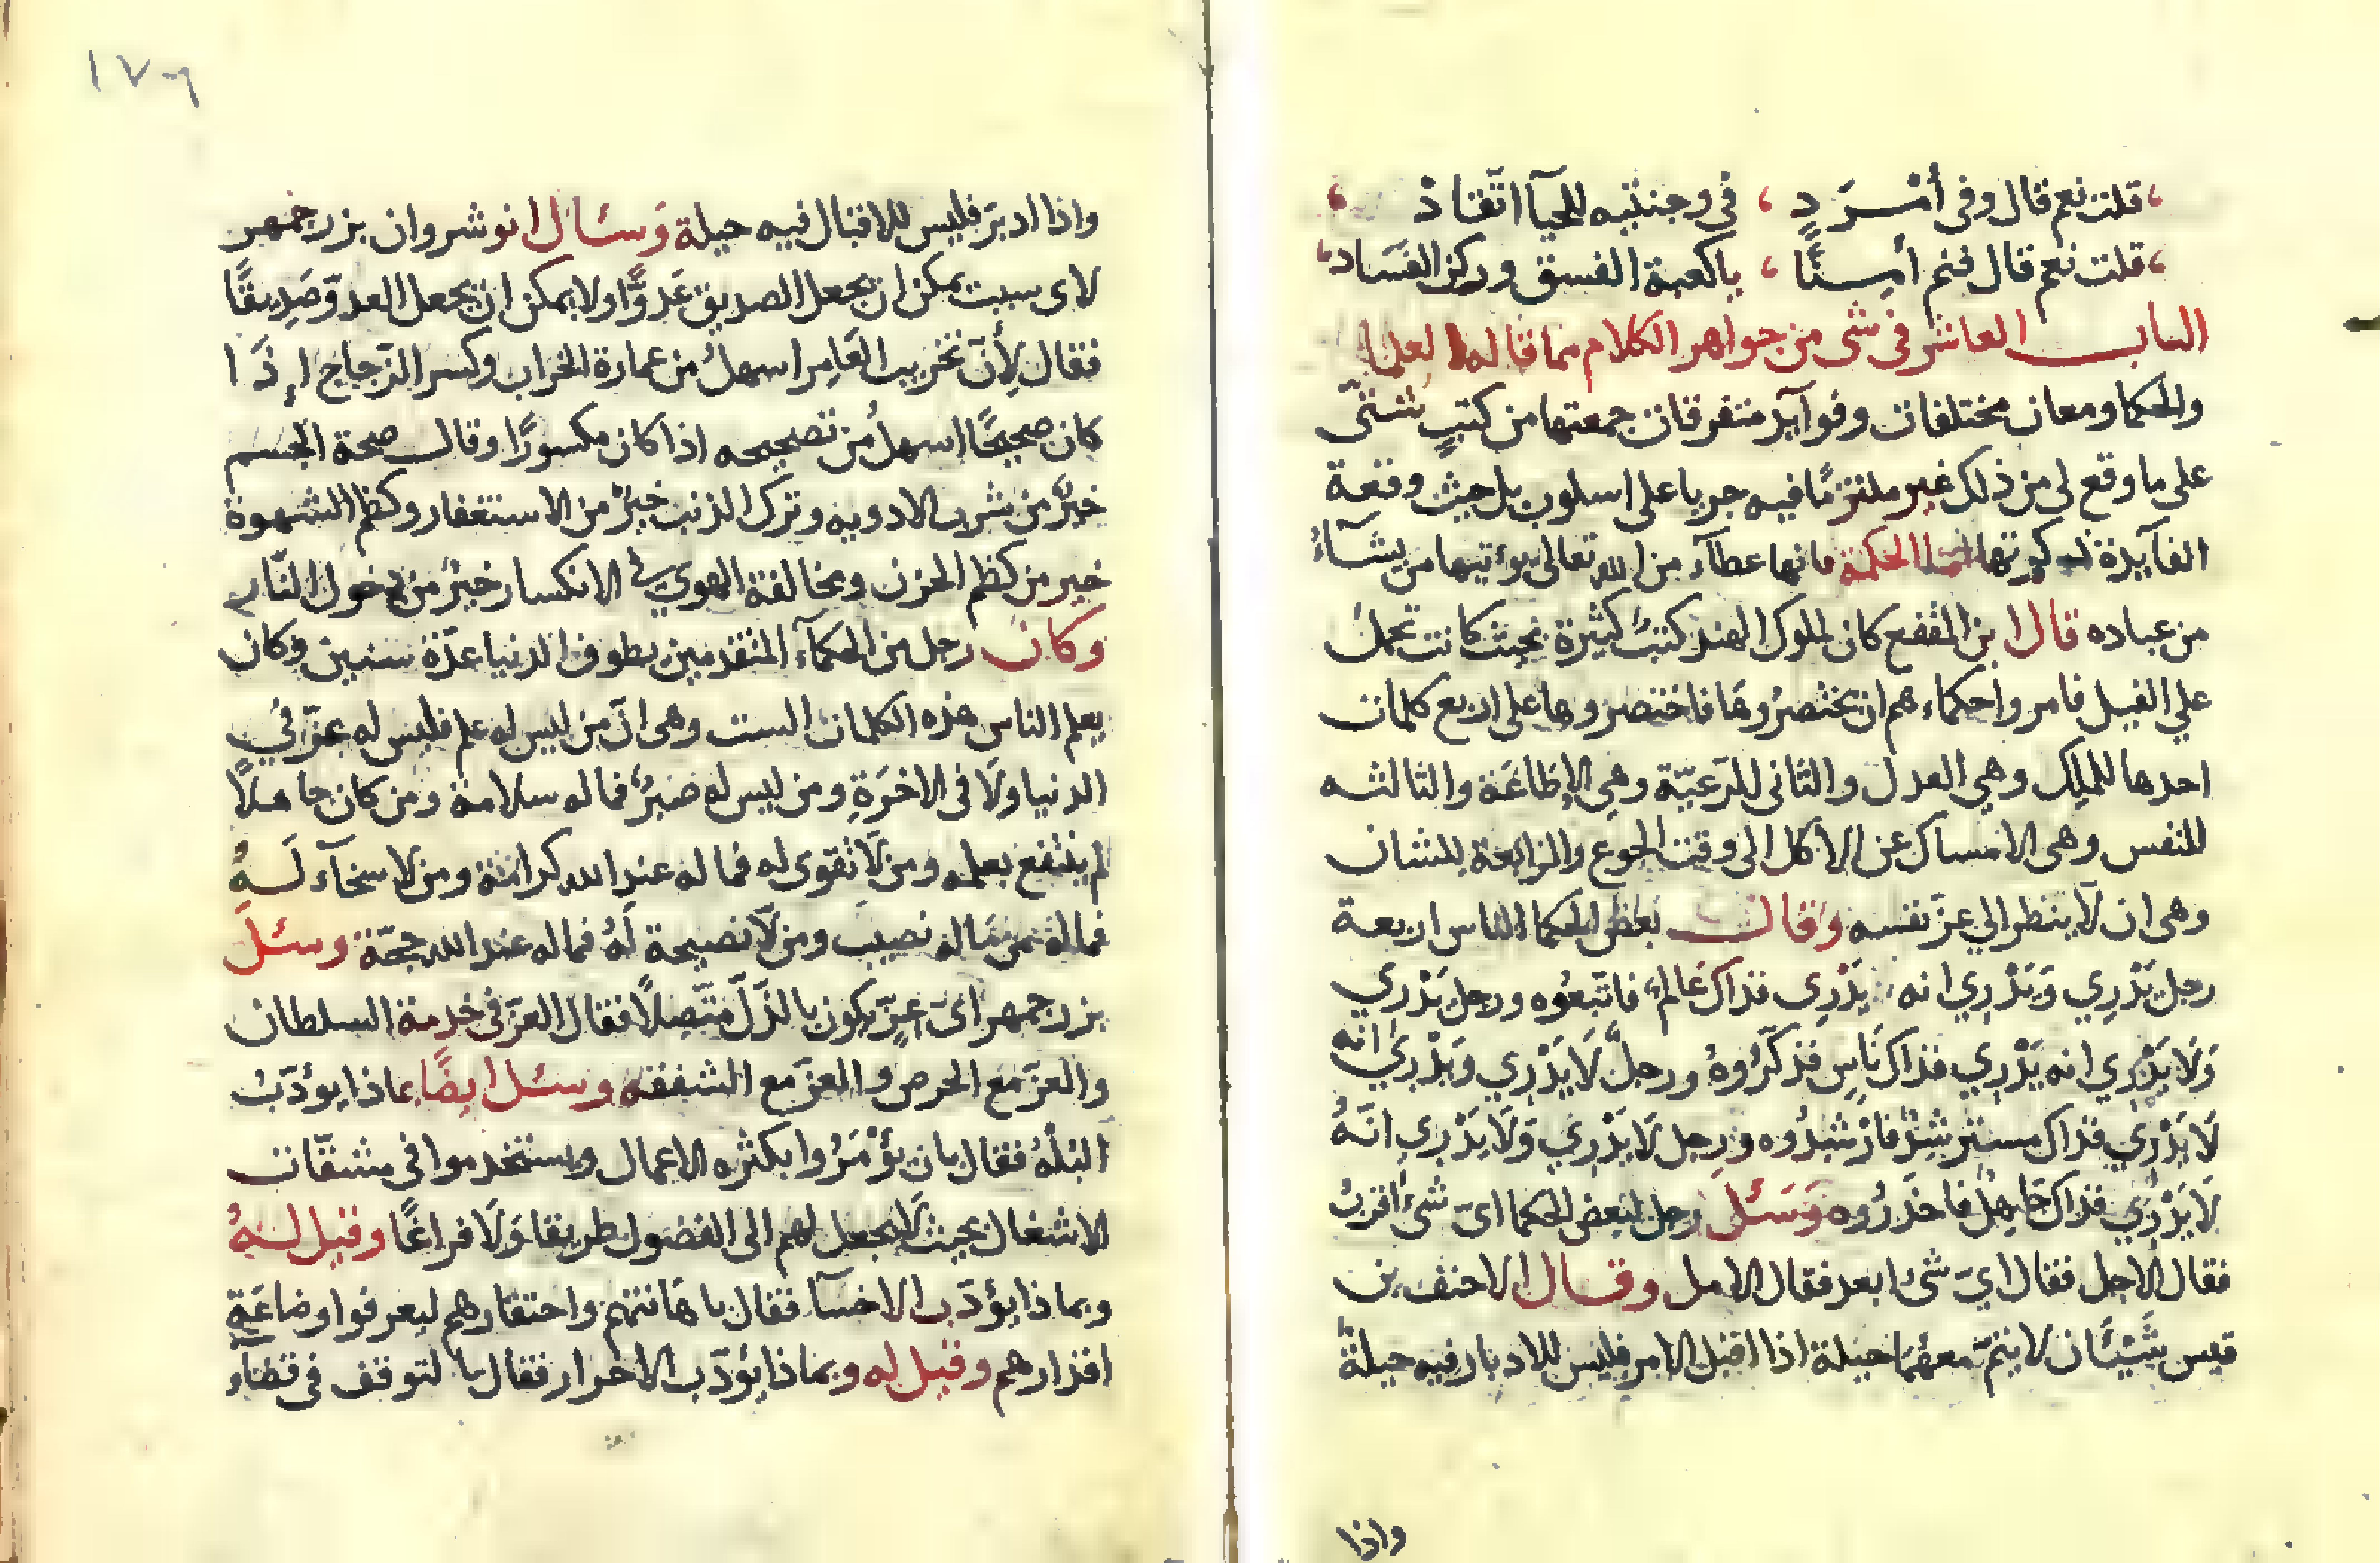 ، قلت نعم قال وفى أمْرَدٍ ، فى وجنتيه للحيآ اتّقادْ ،
، قلت نعم قال فنم أمِنًا ، ياكعبة الفسق وركن الفَسَاد ،
الباب العاشر فى شى من جواهر الكلام مما قاله العلما
والحكما ومعان مختلفات وفوآيد متفرقات جمعتها من كتبٍ شتّى
على ما وقع لى من ذلك غير ملتزمًا فيه جريا على اسلوب بل حيث وقعة
الفآيدة الحكمة فانها عطآء من الله تعالى يوءتيها من يشآءُ
من عباده قال ابن المقفع كان لملوك الهند كتبٌ كثيرة بحيث كانت تحمل
علي الفيل فامروا حكماءهم ان يختصرُوهَا فاختصروها على اربع كلمات
احدها للملِك وهي العدل والثانى للرّعيّة وهي الإطاعَة والثالثه
للنفس وهى الامساك عن الاكل الى وقت الجوع والرابعة للشان
وهى ان لَا ينظر الي عزّ نفسه وقالت بعظ الحكما الناس اربعة
رجل يَدْرِي وَيَدْرِي انه يَدْرِى فذاك عَالمٌ فاتّبعُوه ورجل يَدْرِي
وَلَا يَدْرِي انه يَدْرِي فذاك نَاسٍ فذكّرُوهُ ورجلٌ لَا يَدْرِي وَيَدْرِي انه
لَا يَدْرِي فذاك مسترشِدٌ فارْشدُوه ورجل لَا يَدْرِي وَلَا يَدْرِي انّهُ
لَا يَدْرِي فذاك جَاهِلٌ فاحذَرُوه وَسَئل رجل لبعض الحكما اىّ شئ اقربُ
فقال الاجل فقال ايّ شئ ابعد فقال الامل وقال الاحنف بن
قيس شَيْئَان لا يتمّ معهُمَا حيلة اذا اقبل الامر فليس للادبار فيه حيلةٌ
واذا
١٧٦
واذا ادبَر فليس للاقبال فيه حيلة وَسئال انوشروان بزرجمهر
لاى سبب يمكن ان يجعل الصديق عَدوًّا ولا يمكن ان يجعل العدوّ صَدِيقًا
فقال لِأنّ تخريب العَامِر اسهلُ من عمارة الخراب وكسر الزّجاج إذَا
كان صحيحًا اسهلُ من تصحيحه اذا كان مكسورًا وقالت صحة الجسم
خيرٌ من شرب الادويه وترك الذنب خيرٌ من الاستغفار وكظم الشهوة
خير من كظم الحزن ومخالفة الهوي فى الانكسار خيرٌ من دخول النّار
وكان رجل من الحكمآء المتقدمين يطوف الدنيا عدّة سنين وكان
يعلم الناس هذه الكلمات الست وهى انّ من ليس له علم فليس له عزّ في
الدنيا ولَا فى الاخرَةِ ومن ليس له صبرٌ فماله سلامة ومن كان جاهلًا
لم ينتفع بعلمه ومن لَا تقوى له فماله عند الله كرامَة ومن لا سخآء لَهُ
فماله من مَاله نصيب ومن لَا نصيحة لَهُ فماله عند الله حجّة وسئل
بزرجمهر اىّ عِزٍّ يكون بالذّلّ متّصِلًا فقال العزّ فى خدمة السلطان
والعزّ مع الحرص والعزّ مع الشفقه وسئل ايضًا بماذا يؤدّبُ
البُلْهُ فقال بان يُؤْمَرُوا بكثره الاعمال ويستخدموا فى مشقّات
الاشغال بحيث لَا يجعل لهم الى الفضول طريقا وَلَا فراغًا وقيل لهُ
وبماذا يؤدّب الاخسآ فقال باهَانتهم واحتقارهم ليعرفوا وضاعَة
اقذارهم وقيل له وبماذا يؤدّب الاحرار فقال بالتوقف فى قضآء